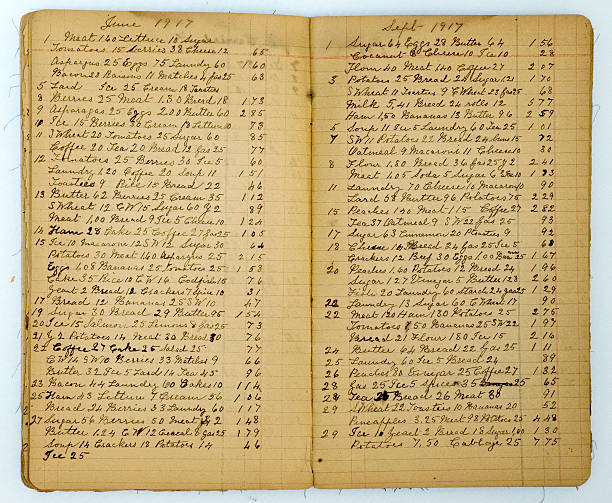 June 1917
1 Meat 160 Lettuce 10 Sugar
Tomatoes 15 Berries 38 Cheese 12 65
Asparagus 25 Eggs 75 Laundry 60 160
Bacon 23 Raisins 11 Matches 4 gas 25 63
5 Lard Ice 25 Cream 18 Toasties
8 Berries 25 Meat 1.30 Bread 18 173
9 Asparagus 25 Eggs 2.00 Butter 60 285
10 Ice 15 Berries 30 Cream 8 Lettuce 10 78
11 S Wheat 20 Tomatoes 25 Sugar 60 85
Coffee 20 Tea 20 Bread 12 Gas 25 77
12 Tomatoes 25 Berries 30 Ice 5 60
Laundry 1.20 Coffee 20 Soup 11 151
Toasties 9 Rice 15 Bread 22 46
13 Butter 62 Berries 25 Cream 35 112
S Wheat 12 C W 15 Sugar 60 2 89
Meat 1.00 Bread 9 Ice 5 Cheese 10 124
14 Ham 28 Cake 25 Coffee 27 Gas 25 105
15 Ice 10 Macaroni 12 S W 12 Sugar 30 64
Potatoes 30 Meat 160 Asparagus 25 215
Eggs 1.08 Bananas 25 Tomatoes 25 158
Cake 35 Rice 10 C W 16 Codfish 15 76
Yeast 2 Bread 12 Crackers 7 Pie 10 31
17 Bread 12 Bananas 25 S W 10 47
19 Sugar 30 Bread 29 Butter 95 154
20 Ice 15 Salmon 25 Lemons 8 Gas 25 73
21 G 2 Potatoes 14 Meat 30 Bread 30 76
22 Coffee 27 Cake 25 25 77
C W 24 S W 10 Berries 33 Matches 9 66
Butter 32 Ice 5 Lard 14 Tea 45 96
23 Bacon 44 Laundry 60 Cakes 10 114
25 Ham 43 Lettuce 7 Cream 56 106
Bread 24 Berries 33 Laundry 60 117
27 Sugar 56 Berries 50 Meat 42 148
Butter 1.24 C W 12 Cereal 8 Gas 25 179
Soup 14 Crackers 18 Potatoes 14 46
Ice 25
Sept 1917
1 Sugar 64 Eggs 28 Butter 64 156
Cocoanut 8 Cheese 10 Ice 10 28
Flour 40 Meat 140 Coffee 27 207
3 Potatoes 25 Bread 24 Sugar 121 170
S Wheat 11 Toasties 9 C Wheat 22 Gas 25 68
Milk 5.41 Bread 24 rolls 12 577
Ham 1.50 Bananas 13 Butter 96 259
5 Soup 11 Ice 5 Laundry 60 Tea 25 101
7 S W 11 Potatoes 22 Bread 24 15 72
Oatmeal 9 Macaroni 11 Cheese 10 30
8 Flour 1.80 Bread 36 Gas 25 241
Meat 1.05 Soda 5 Sugar 62 Ice 193
11 Laundry 70 Cheese 10 Macaroni 10 90
Lard 58 Butter 96 Potatoes 75 229
15 Peaches 1.40 Meat 1.15 Coffee 27 282
Tea 37 Oatmeal 9 S W 22 Gas 25 93
17 Sugar 63 Cinnamon 20 Toasties 9 92
18 Cheese 14 Bread 24 Gas 25 Ice 5 68
Crackers 12 Beef 30 Eggs 1.00 25 167
20 Peaches 1.60 Potatoes 12 Bread 24 196
Sugar 127 Vinegar 5 Butter 128 260
Fish 20 Laundry 60 Starch 24 Gas 25 129
22 Laundry 13 Sugar 60 C Wheat 17 90
22 Meat 120 Ham 130 Potatoes 25 275
Tomatoes 150 Bananas 25 S W 22 197
Bread 21 Flour 180 Ice 15 216
24 Butter 64 Bread 22 Gas 25 111
25 Laundry 60 Ice 5 Bread 24 89
26 Peaches 80 Vinegar 25 Coffee 27 132
28 Gas 25 Ice 5 Spice 35 25 65
28 Tea 25 Bread 26 Meat 80 91
29 S Wheat 22 Toasties 10 Bananas 20 52
Pineapples 3.25 Meat 98 Potatoes 25 448
29 Ice 10 Yeast 2 Bread 18 Sugar 1.00 130
Potatoes 7.50 Cabbage 25 7.75